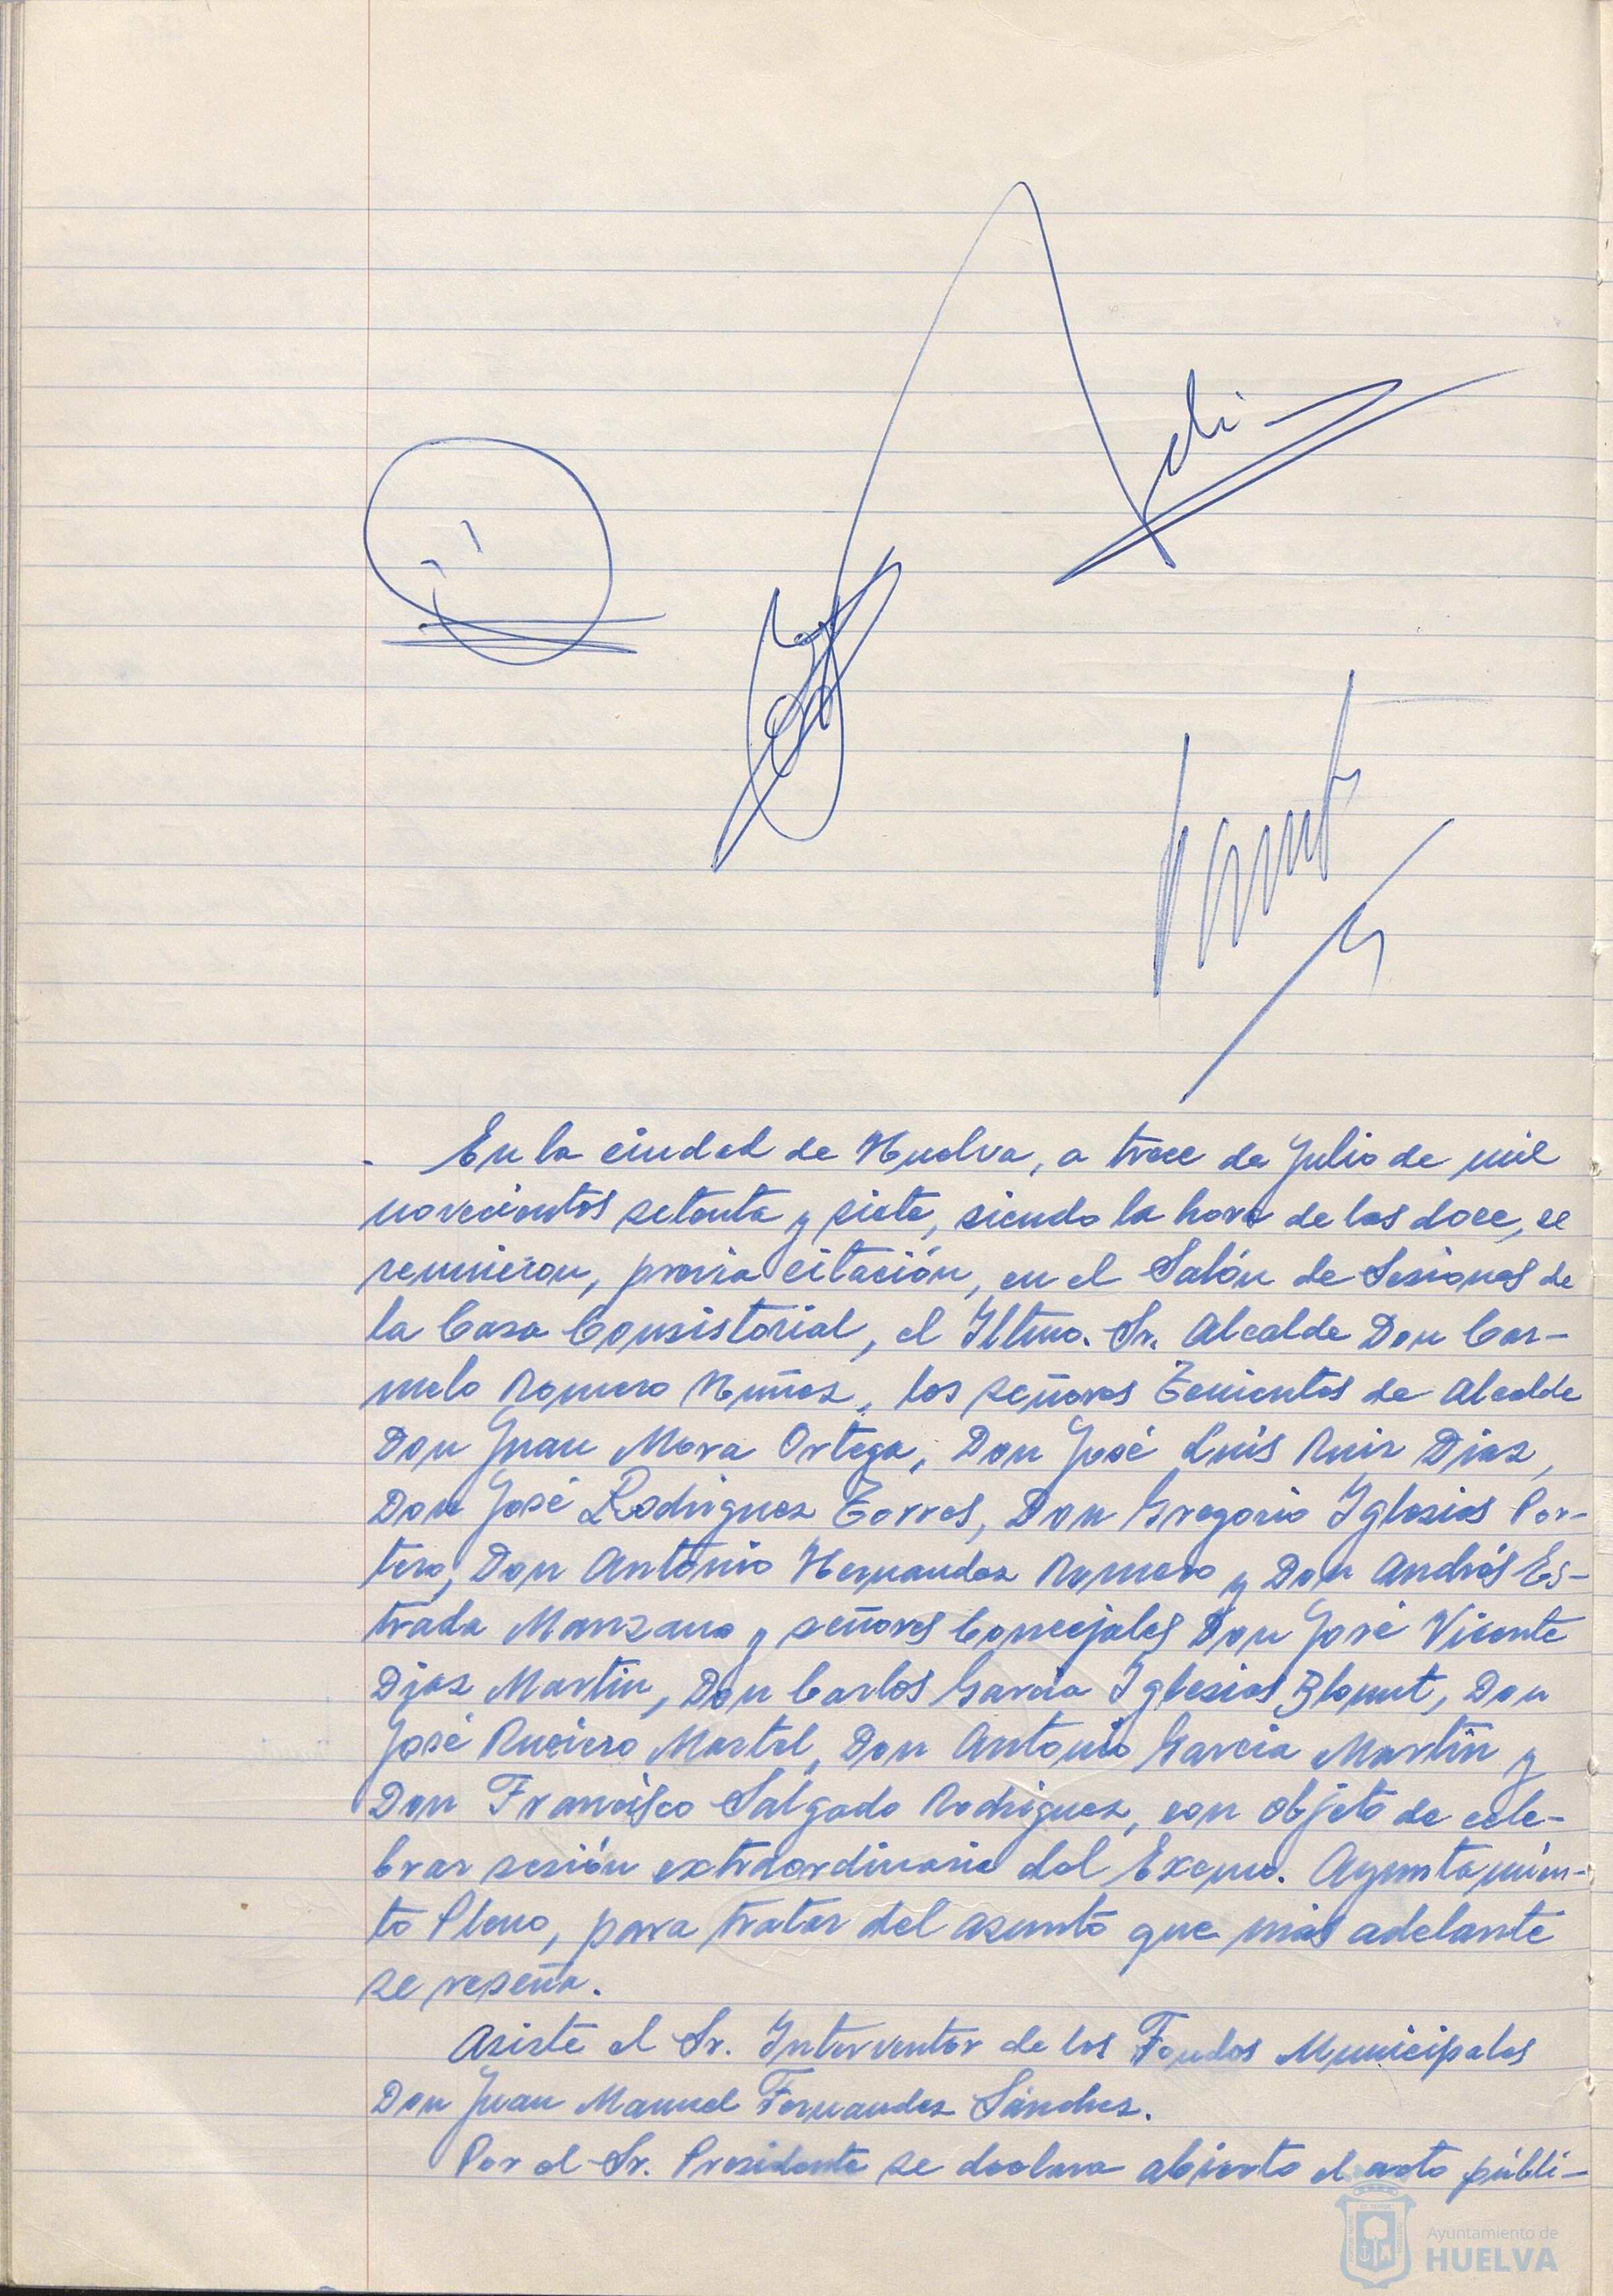 En la ciudad de Huelva, a trece de Julio de mil
novecientos setenta y siete, siendo la hora de las doce, se
reunieron, previa citación, en el Salón de Sesiones de
la Casa Consistorial, el Iltmo. Sr. Alcalde Don Car-
melo Romero Nuñez, los señores Tenientes de Alcalde
Don Juan Mora Ortega, Don José Luís Ruiz Diaz,
Don José Rodriguez Torres, Don Gregorio Iglesias Por-
tero, Don Antonio Hernandez Romero y Don Andrés Es-
trada Manzano y señores Concejales Don José Vicente
Diaz Martin, Don Carlos Garcia Iglesias Blount, Don
José Ruciero Martel, Don Antonio Garcia Martin y
Don Francisco Salgado Rodriguez, con objeto de cele-
brar sesión extraordinaria del Excmo. Ayuntamien-
to Pleno, para tratar del asunto que más adelante
se reseña.
Asiste el Sr. Interventor de los Fondos Municipales
Don Juan Manuel Fernandez Sánchez.
Por el Sr. Presidente se declara abierto el acto públi-
Ayuntamiento de
HUELVA